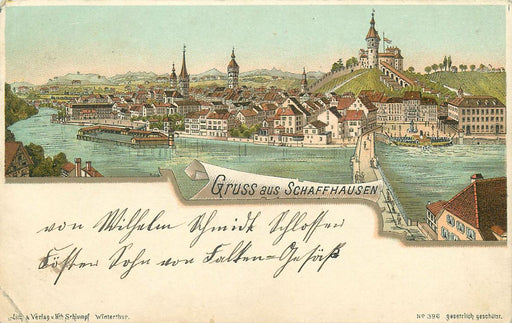 Gruss aus Schaffhausen
von Wilhelm Schmidt Schlosser
Sohn von Falken-
Lith. & Verlag v. Schlumpf Winterthur.
No 396 gesetzlich geschützt.